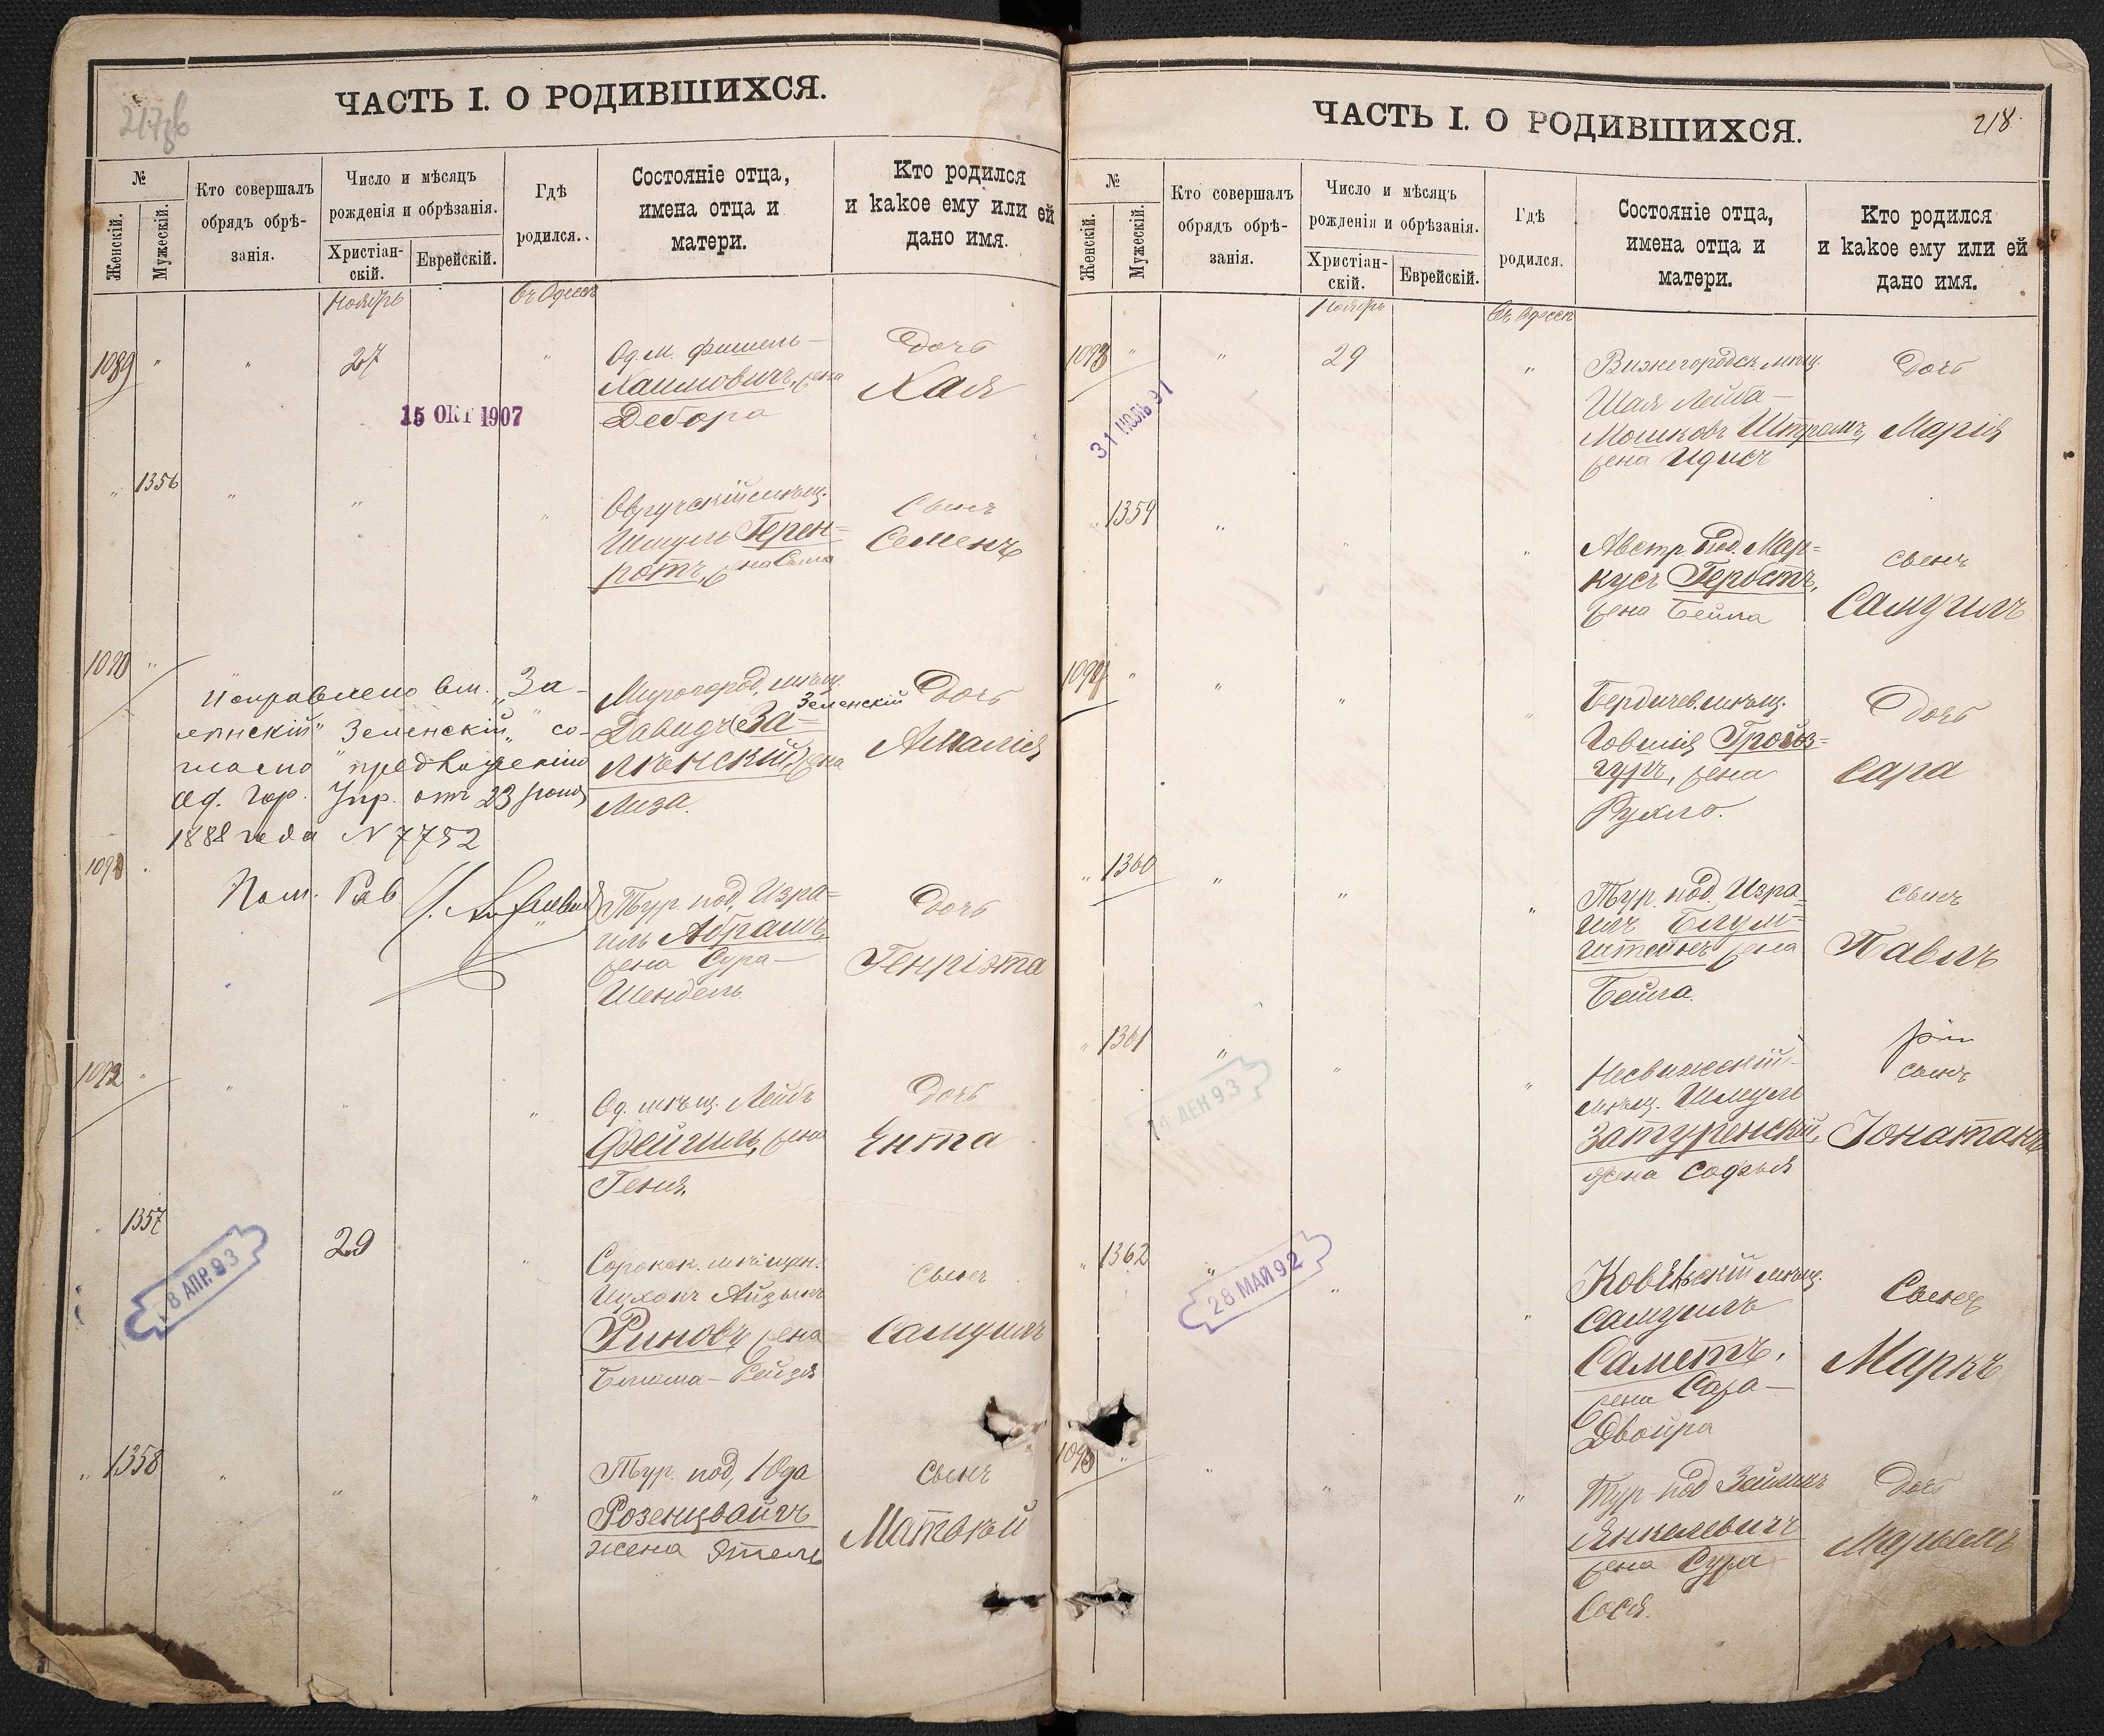 217об
ЧАСТЬ I. О РОДИВШИХСЯ.
№
Женскій.
Мужескій.
Кто совершалъ
обрядъ обрѣ-
занія.
Число и мѣсяцъ
рожденія и обрѣзанія.
Христіан-
скій.
Еврейскій.
Гдѣ
родился.
Состояніе отца,
имена отца и
матери.
Кто родился
и какое ему или ей
дано имя.
Ноябрь
въ Одессѣ
1089 " " 27 "
Од. м. Фишель-
Хаимовичъ, жена
Дебора
Дочь
Хая
15 ОКТ 1907
" 1356 " " "
Овручскій мѣщ.
Шмуль Герен=
ротъ, жена
Сынъ
Семенъ
1090 "
Исправлено вм. „За-
лѣнскій" „Зеленскій" со-
гласно предложенію
Од. Гор. Упр. отъ 23
1888 года N 7752
Пом. Рав
Миргород. мѣщ.
Зеленскій
Давидъ (За=
лѣнскій) жена
Лиза.
Дочь
Амалія
1091
Тур. под. Изра=
иль Абрамъ,
жена Сура-
Шендель
Дочь
Генріэта
1092 " " " "
Од. мѣщ. Лейбъ
Фейгиль, жена
Геня.
Дочь
Ента
" 1357 29 "
8 АПР. 93
Сорокск. мѣщан.
Цухокъ Айзыкъ
Риновъ жена
Блюма-Рейзя
Сынъ
Самуилъ
" 1358 " " "
Тур. под. Юда
Розенцвайгъ
жена Этель
Сынъ
Матвѣй
218.
ЧАСТЬ I. О РОДИВШИХСЯ.
№
Женскій.
Мужескій.
Кто совершалъ
обрядъ обрѣ-
занія.
Число и мѣсяцъ
рожденія и обрѣзанія.
Христіан-
скій.
Еврейскій.
Гдѣ
родился.
Состояніе отца,
имена отца и
матери.
Кто родился
и какое ему или ей
дано имя.
Ноябрь
въ Одессѣ
1093 " " 29 "
31 ІЮЛЬ 91
мѣщ.
Шая Лейба-
Мошковъ Штрамъ,
жена Идись
Дочь
Марія
" 1359 " " "
Австр. под. Мар=
кусъ Геростъ,
жена Бейла
сынъ
Самуилъ
1094 " " " "
Бердичев. мѣщ.
Говшія Гройз=
гуръ, жена
Рухля.
Дочь
Сара
" 1360 " " "
Тур. под. Изра
иль Блум=
штейнъ жена
Бейла.
сынъ
Павлъ
" 1361 " " "
14 ДЕН 93
Несвижскій
мѣщ. Шмуль
Затуренскій,
жена Софья
сынъ
Іонатанъ
" 1362 " " "
28 МАЙ 92
Ковенскій мѣщ.
Самуилъ
Саметъ,
жена Сара-
Двойра
Сынъ
Маркъ
1095 " " " "
Тур. под
Янкелевичъ
жена Сура
Сося.
Дочь
Марьемъ